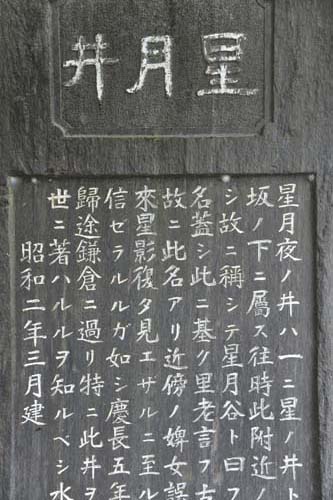 星月井
星月夜ノ井ハ一ニ星ノ井ト
坂ノ下ニ屬ス往時此附近
シ故ニ稱シテ星月谷ト曰フ
名蓋シ此ニ基ク里老言フ古
故ニ此名アリ近傍ノ婢女誤
來星影復タ見エサルニ至ル
信セラルルガ如シ慶長五年
歸途鎌倉ニ過リ特ニ此井ヲ
世ニ著ハルルヲ知ルベシ水
昭和二年三月建